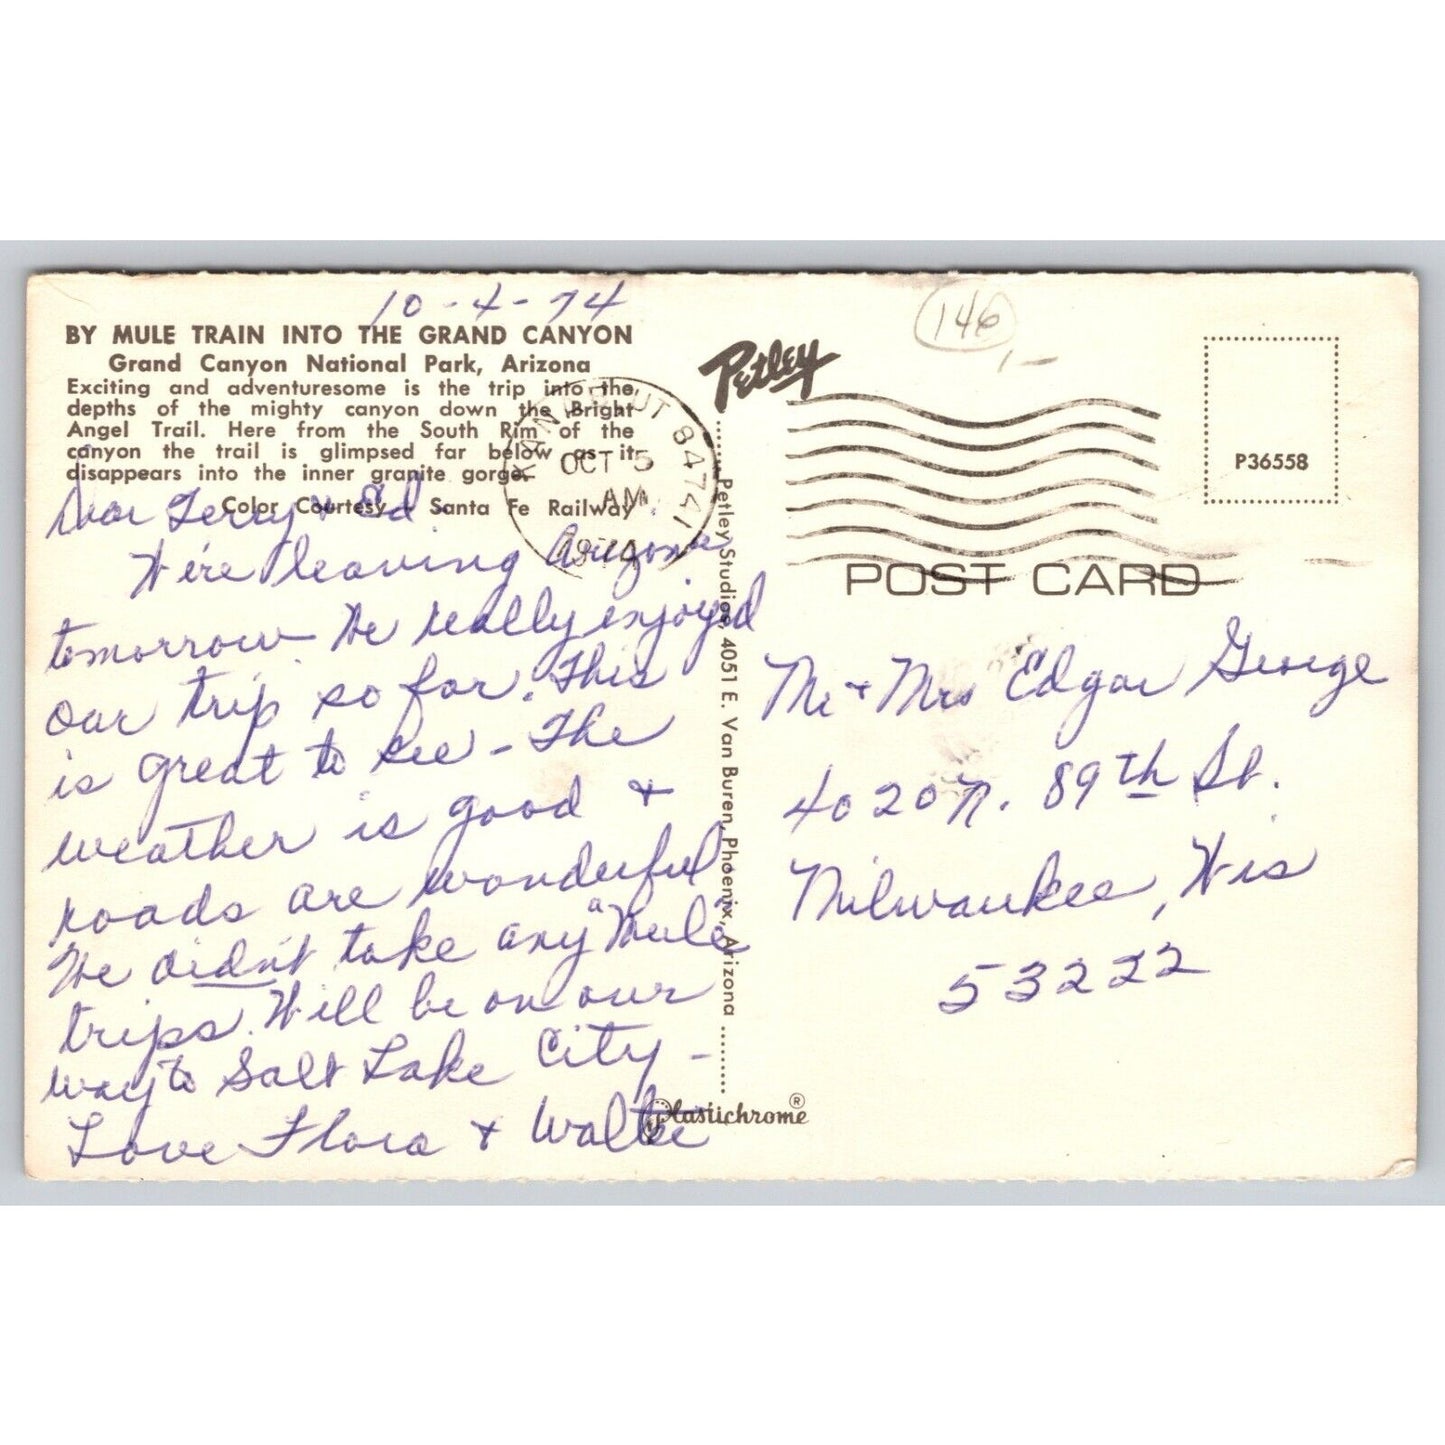 10-4-74
BY MULE TRAIN INTO THE GRAND CANYON
Grand Canyon National Park, Arizona
Exciting and adventuresome is the trip into the
depths of the mighty canyon down the Bright
Angel Trail. Here from the South Rim of the
canyon the trail is glimpsed far below as it
disappears into the inner granite gorge.
Color Courtesy Santa Fe Railway
KANAB, UT 84741
OCT 5
AM
1974
Dear Gerry & Ed.
We're leaving Arizona
tomorrow. We really enjoyed
our trip so far. This
is great to see - The
weather is good &
roads are wonderful
We didn't take any "Mule"
trips. Will be on our
way to Salt Lake City -
Love Flora & Walter
Petley
Petley Studios, 4051 E. Van Buren, Phoenix, Arizona
Plastichrome ®
146
1-
P36558
POST CARD
Mr & Mrs Edgar George
4020 N. 89th St.
Milwaukee, Wis
53222